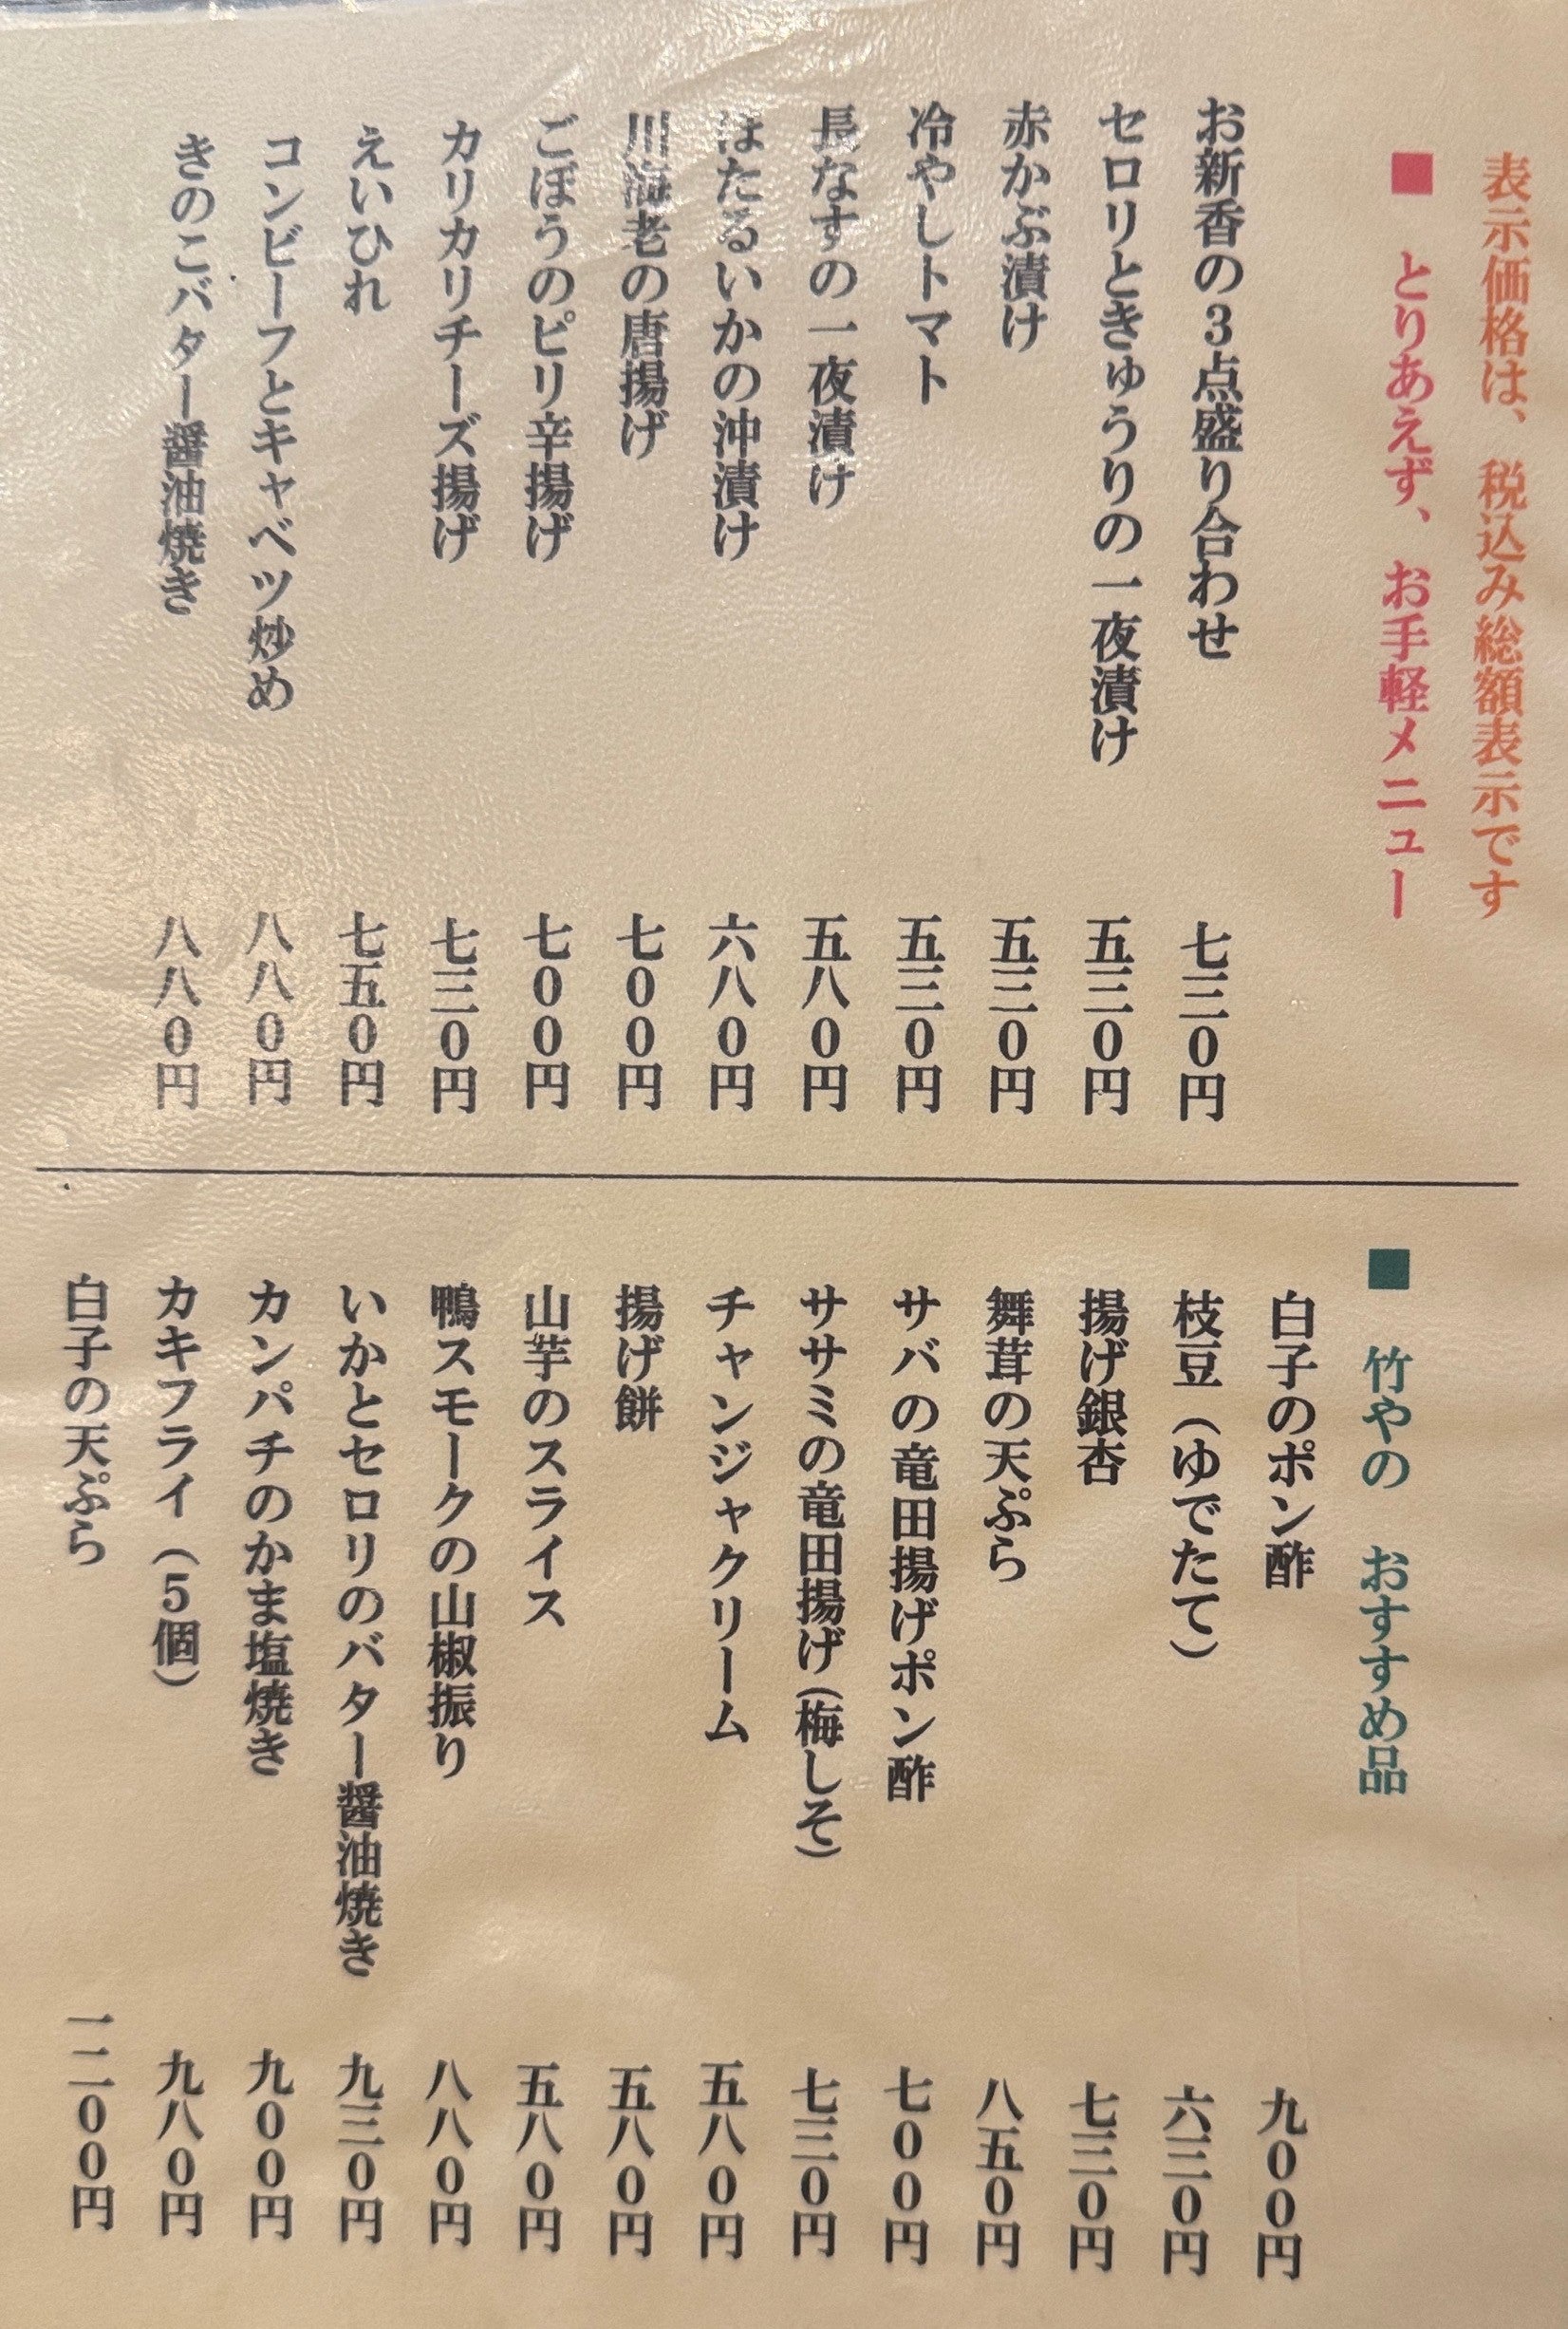 表示価格は、税込み総額表示です
■ とりあえず、お手軽メニュー
お新香の3点盛り合わせ 七三0円
セロリときゅうりの一夜漬け 五三0円
赤かぶ漬け 五三0円
冷やしトマト 五三0円
長なすの一夜漬け 五八0円
ほたるいかの沖漬け 六八0円
川海老の唐揚げ 七00円
ごぼうのピリ辛揚げ 七00円
カリカリチーズ揚げ 七三0円
えいひれ 七五0円
コンビーフとキャベツ炒め 八八0円
きのこバター醤油焼き 八八0円
■ 竹やの おすすめ品
白子のポン酢 九00円
枝豆（ゆでたて） 六三0円
揚げ銀杏 七三0円
舞茸の天ぷら 八五0円
サバの竜田揚げポン酢 七00円
ササミの竜田揚げ（梅しそ） 七三0円
チャンジャクリーム 五八0円
揚げ餅 五八0円
山芋のスライス 五八0円
鴨スモークの山椒振り 八八0円
いかとセロリのバター醤油焼き 九三0円
カンパチのかま塩焼き 九00円
カキフライ（5個） 九八0円
白子の天ぷら 一二00円